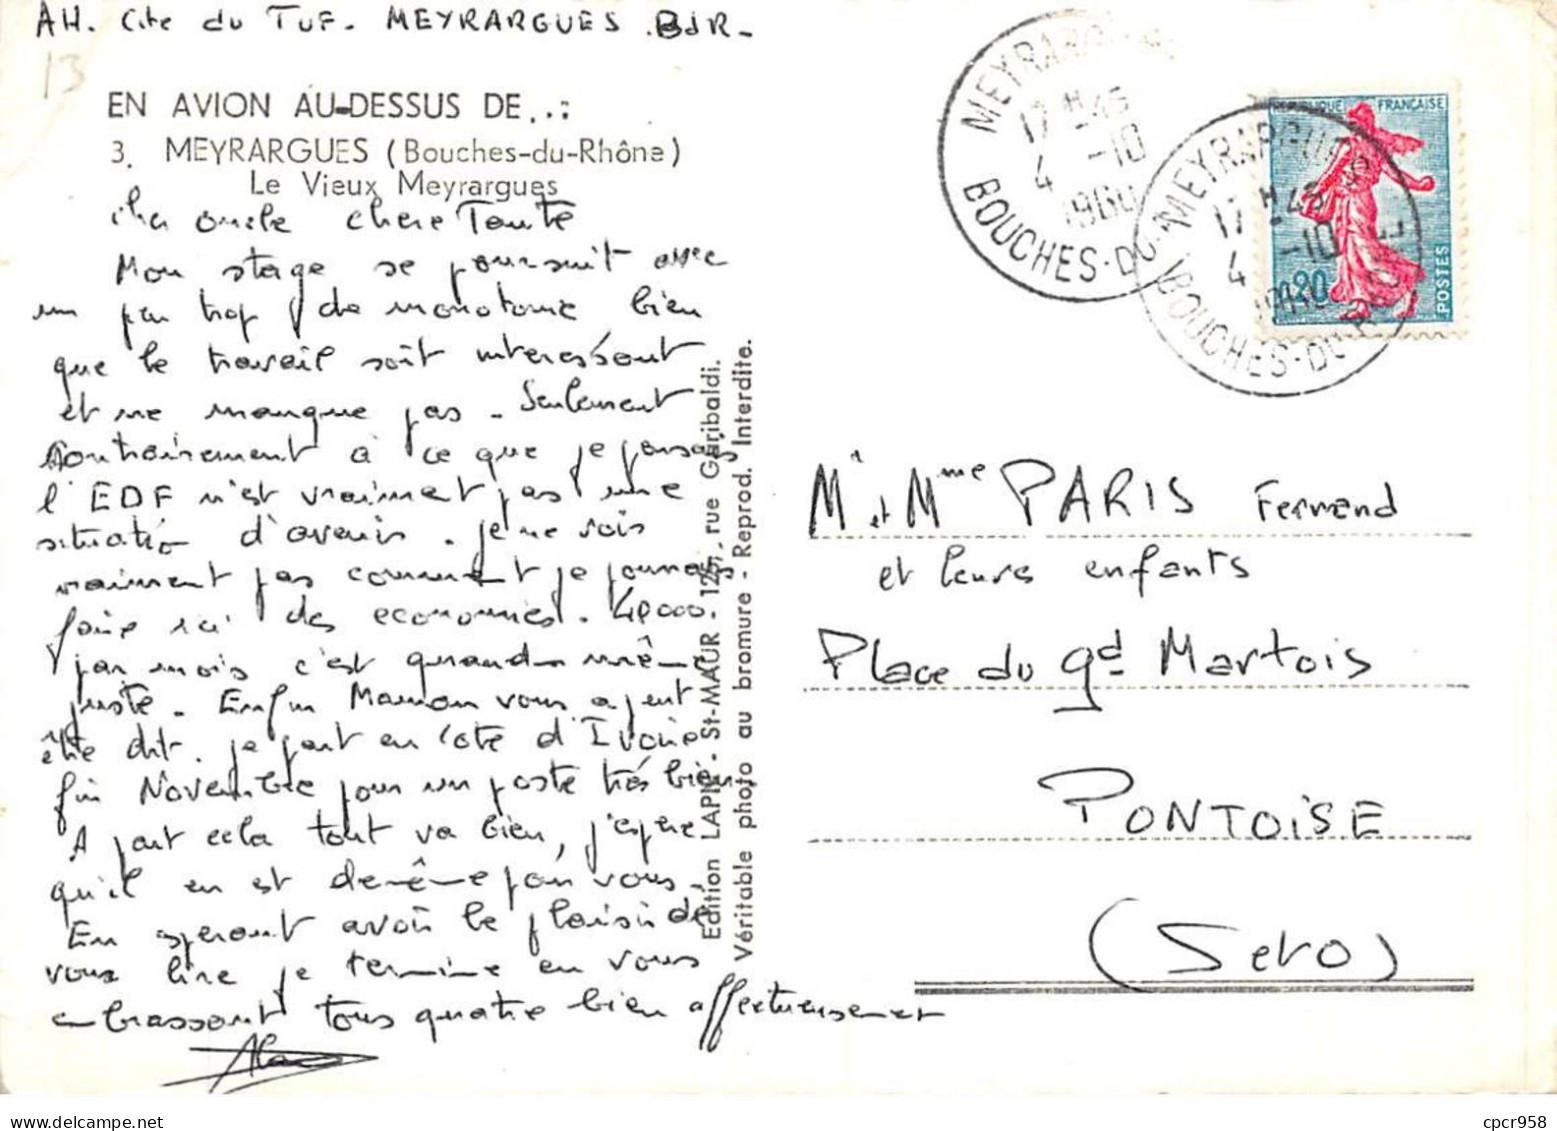 AH. Cité du TUF. MEYRARGUES. BdR-
13
EN AVION AU-DESSUS DE...:
3. MEYRARGUES (Bouches-du-Rhône)
Le Vieux Meyrargues
Cher oncle chere Tante
Mon stage se poursuit avec
un peu trop de monotonie bien
que le travail soit interessant
et ne manque pas. Seulement
contrairement à ce que je pensais
l'EDF n'est vraiment pas une
situation d'avenir. Je ne vois
vraiment pas comment je pourrais
faire ici des economies. 40000
par mois c'est quand même
juste. Enfin Maman vous a peut
être dit. Je part en Cote d'Ivoire
fin Novembre pour un poste très bien
A part cela tout va bien, j'espere
qu'il en est de même pour vous.
En esperant avoir le plaisir de
vous lire je termine en vous
embrassant tous quatre bien affectueusement
Alain
Edition LAPIE - St-MAUR - 125, rue Garibaldi.
Véritable photo au bromure - Reprod. Interdite.
MEYRARGUES
17H45
4 -10
1960
BOUCHES-DU-
MEYRARGUES
17H45
4 -10
BOUCHES-DU-R
REPUBLIQUE FRANÇAISE
0,20
POSTES
Mr et Mme PARIS Fernand
et leurs enfants
Place du gd Martois
PONTOISE
(SetO)
cpcr958